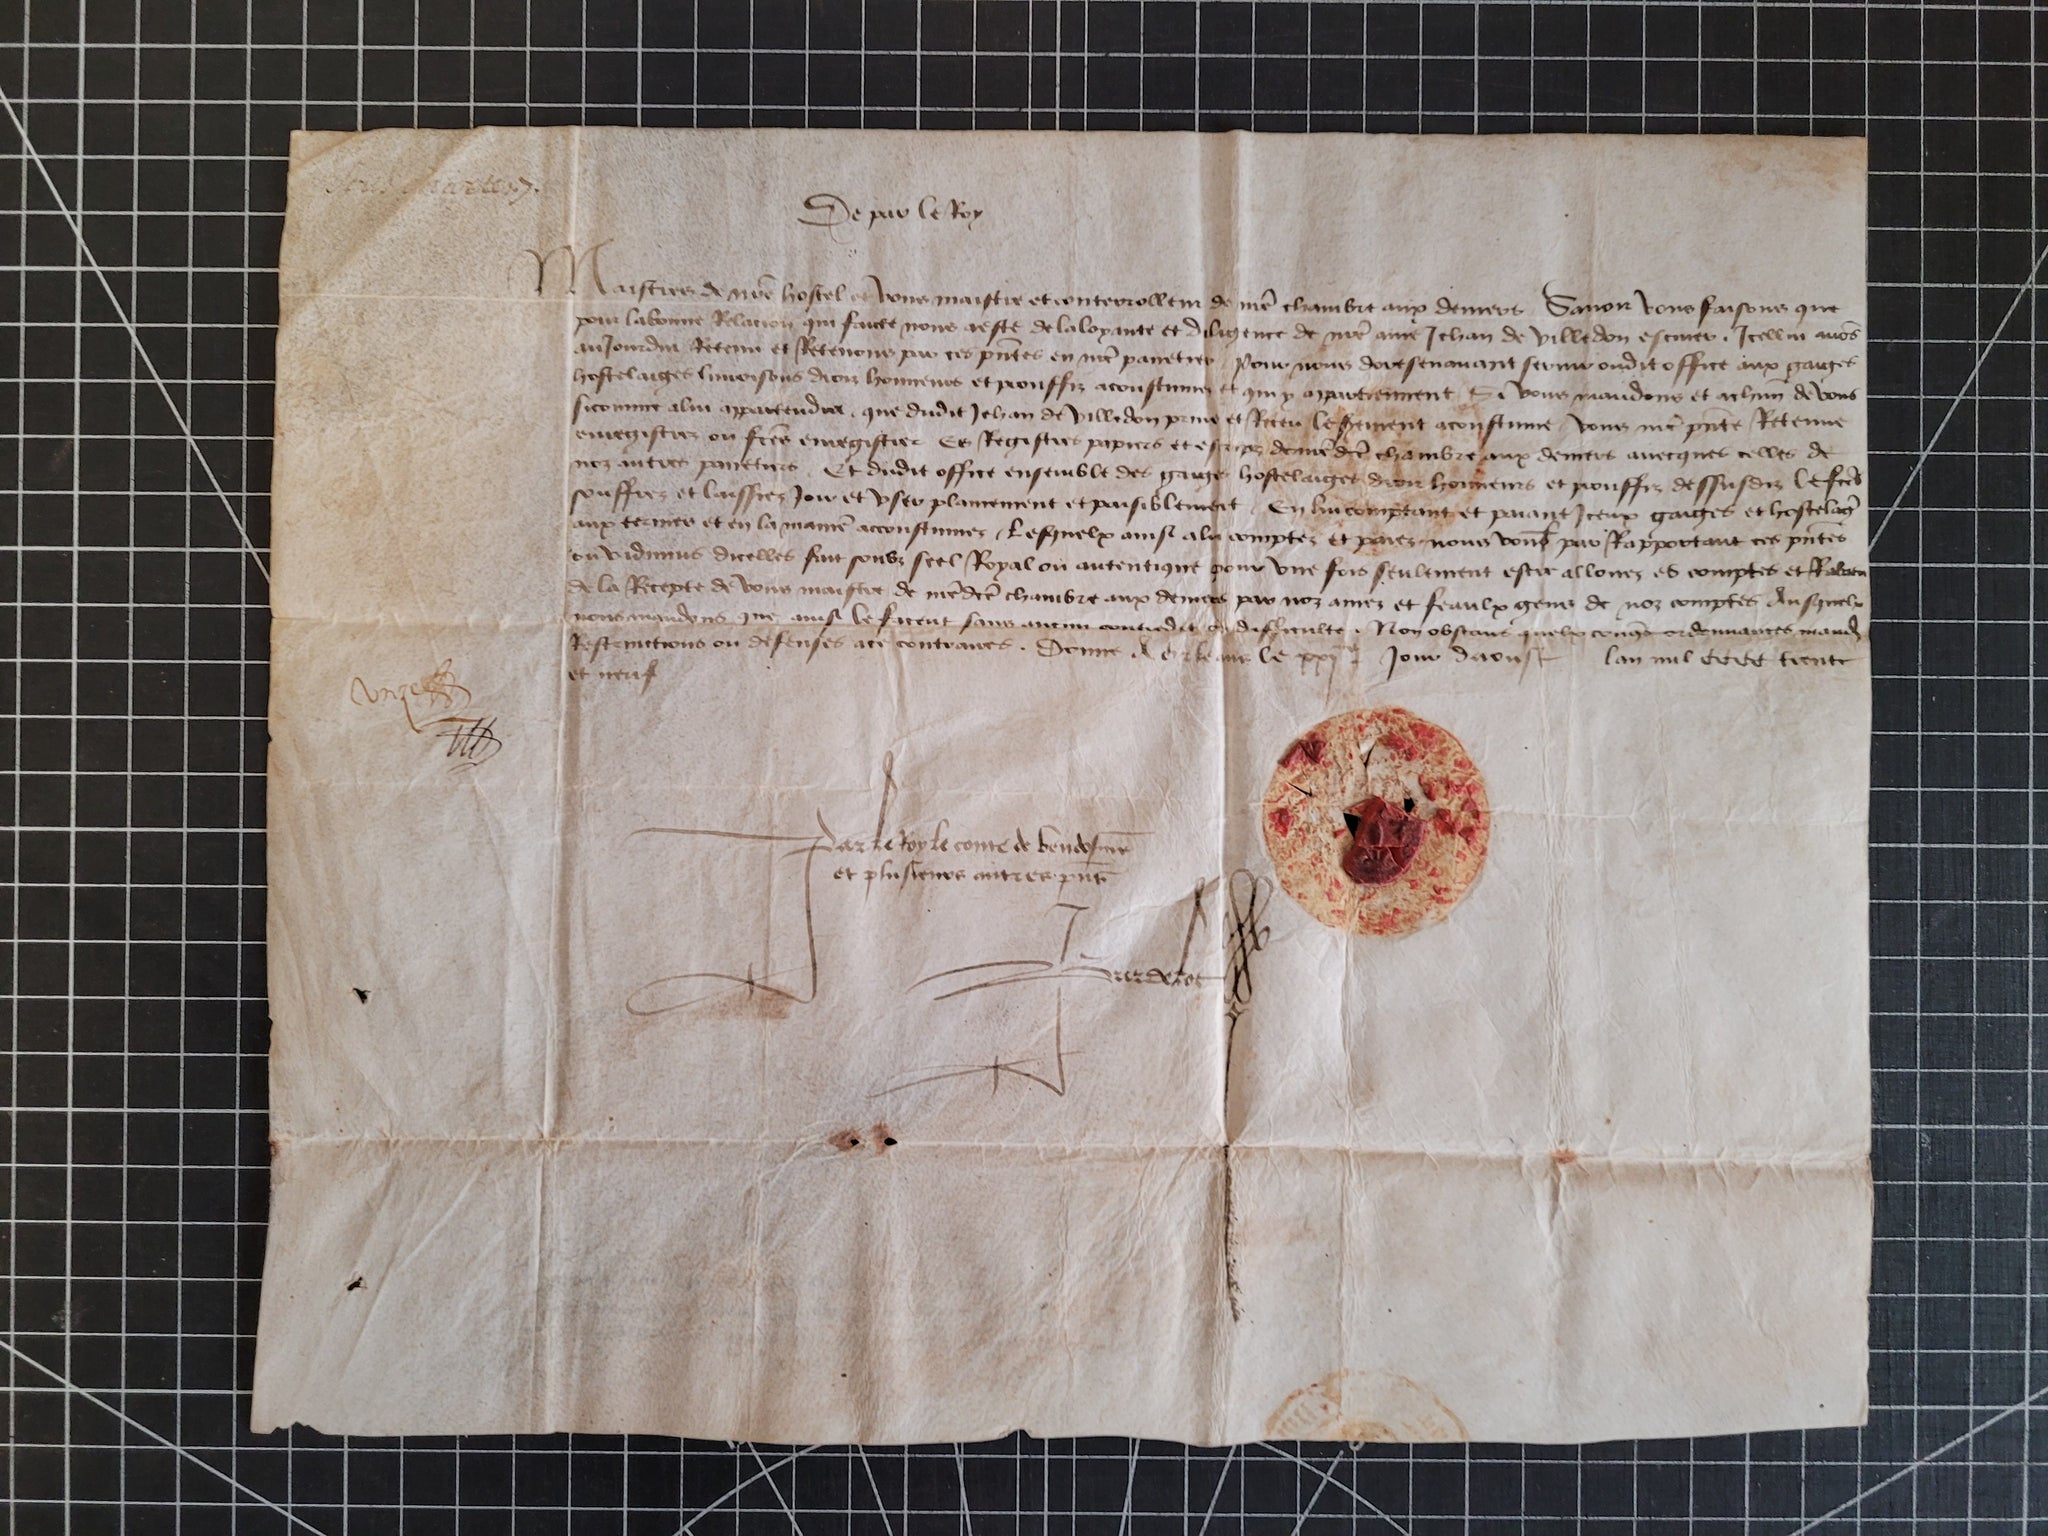 De par le Roy
Maistres de nrē hostel et vous maistre et contrerolleur de nrē chambre aux deniers Savoir vous faisons que
pour la bonne Relacion qui faicte nous a esté de la loyaute et diligence de nrē amé Jehan de Villedon escuier. Icellui avōs
aujourdui Retenu et Retenons par ces pn̄tes en nrē panetier. Pour nous doresenavant servir oudit office aux gaiges
hostelaiges livroisons droiz honneurs et prouffiz acoustumez et qui y appartiennent Si vous mandons et a chūn de vous
sicomme a lui appartendra. que dudit Jehan de Villedon prins et Receu le serement acoustumé vous nrē pn̄te Retenue
enregistrez ou fc̄es enregistrer Es Registres papiers et escrips de nrē dc̄e chambre aux deniers avecques celles de
noz autres panetiers. Et dudit office ensemble des gaiges hostelaiges droiz honneurs et prouffiz dessusdiz le fc̄es
souffrez et laissiez Joir et user plainement et paisiblement. En lui comptant et paiant Iceux gaiges et hostelaḡ
aux termes et en la manierē accoustumez. Lesquelx ainsi a lui comptez et paiez nous voul̄ par Rapportant ces pn̄tes
ou vidimus dicelles fait soubz seel Royal ou autentique pour une fois seulement estre allouez es comptes et Rabatu
de la Recepte de vous maistre de nrē dc̄e chambre aux deniers par noz amez et feaulx gens de noz comptes Ausquelx
nous mandons que ainsi le facent sans aucun contredit ou difficulte. Non obstans quelxconq̄s ordonnances mand̄
Restrinctions ou defenses a ce contraires. Donné A Orleans le xxj jour daoust lan mil cccc trente
et neuf
Par le Roy le conte de Vendosme
et plusieurs autres pn̄s